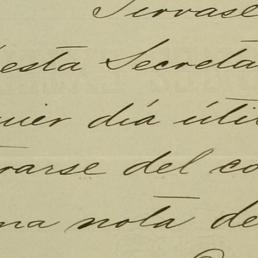 Sírvase
esta Secreta
uier día útil
rarse del co
na nota de